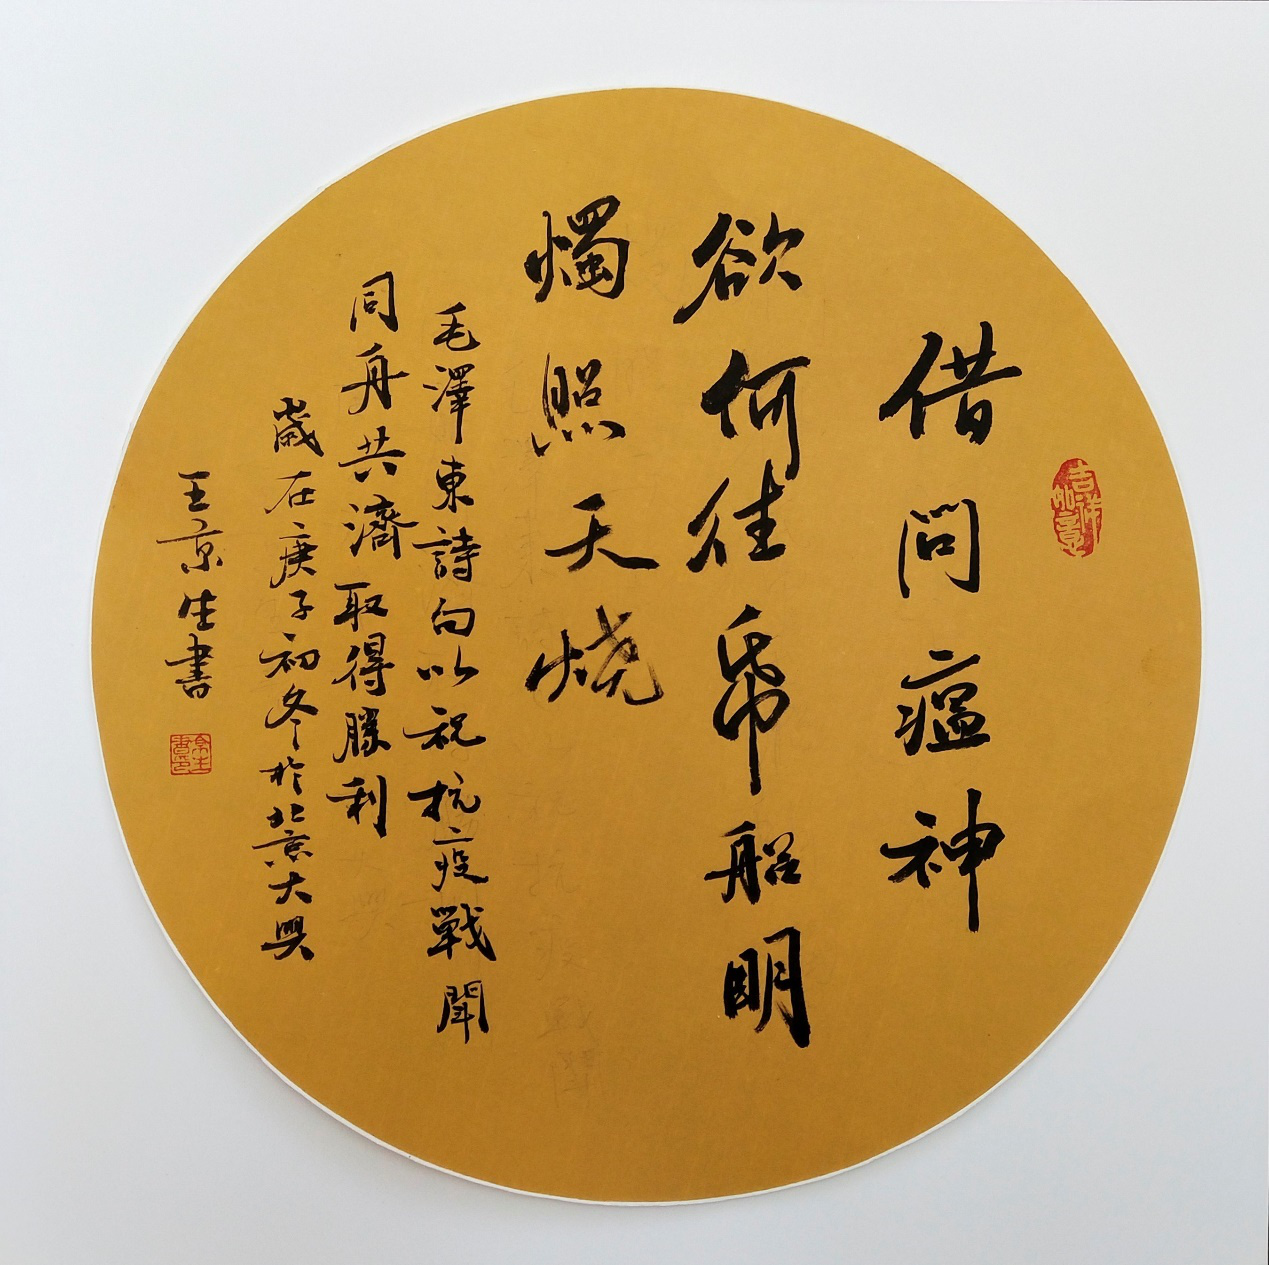 吉祥如意
借问瘟神
欲何往帋船明
燭照天烧
毛澤東詩句以祝抗疫戰鬪
同舟共濟取得勝利
歲在庚子初冬於北京大興
王京生書
京生書印